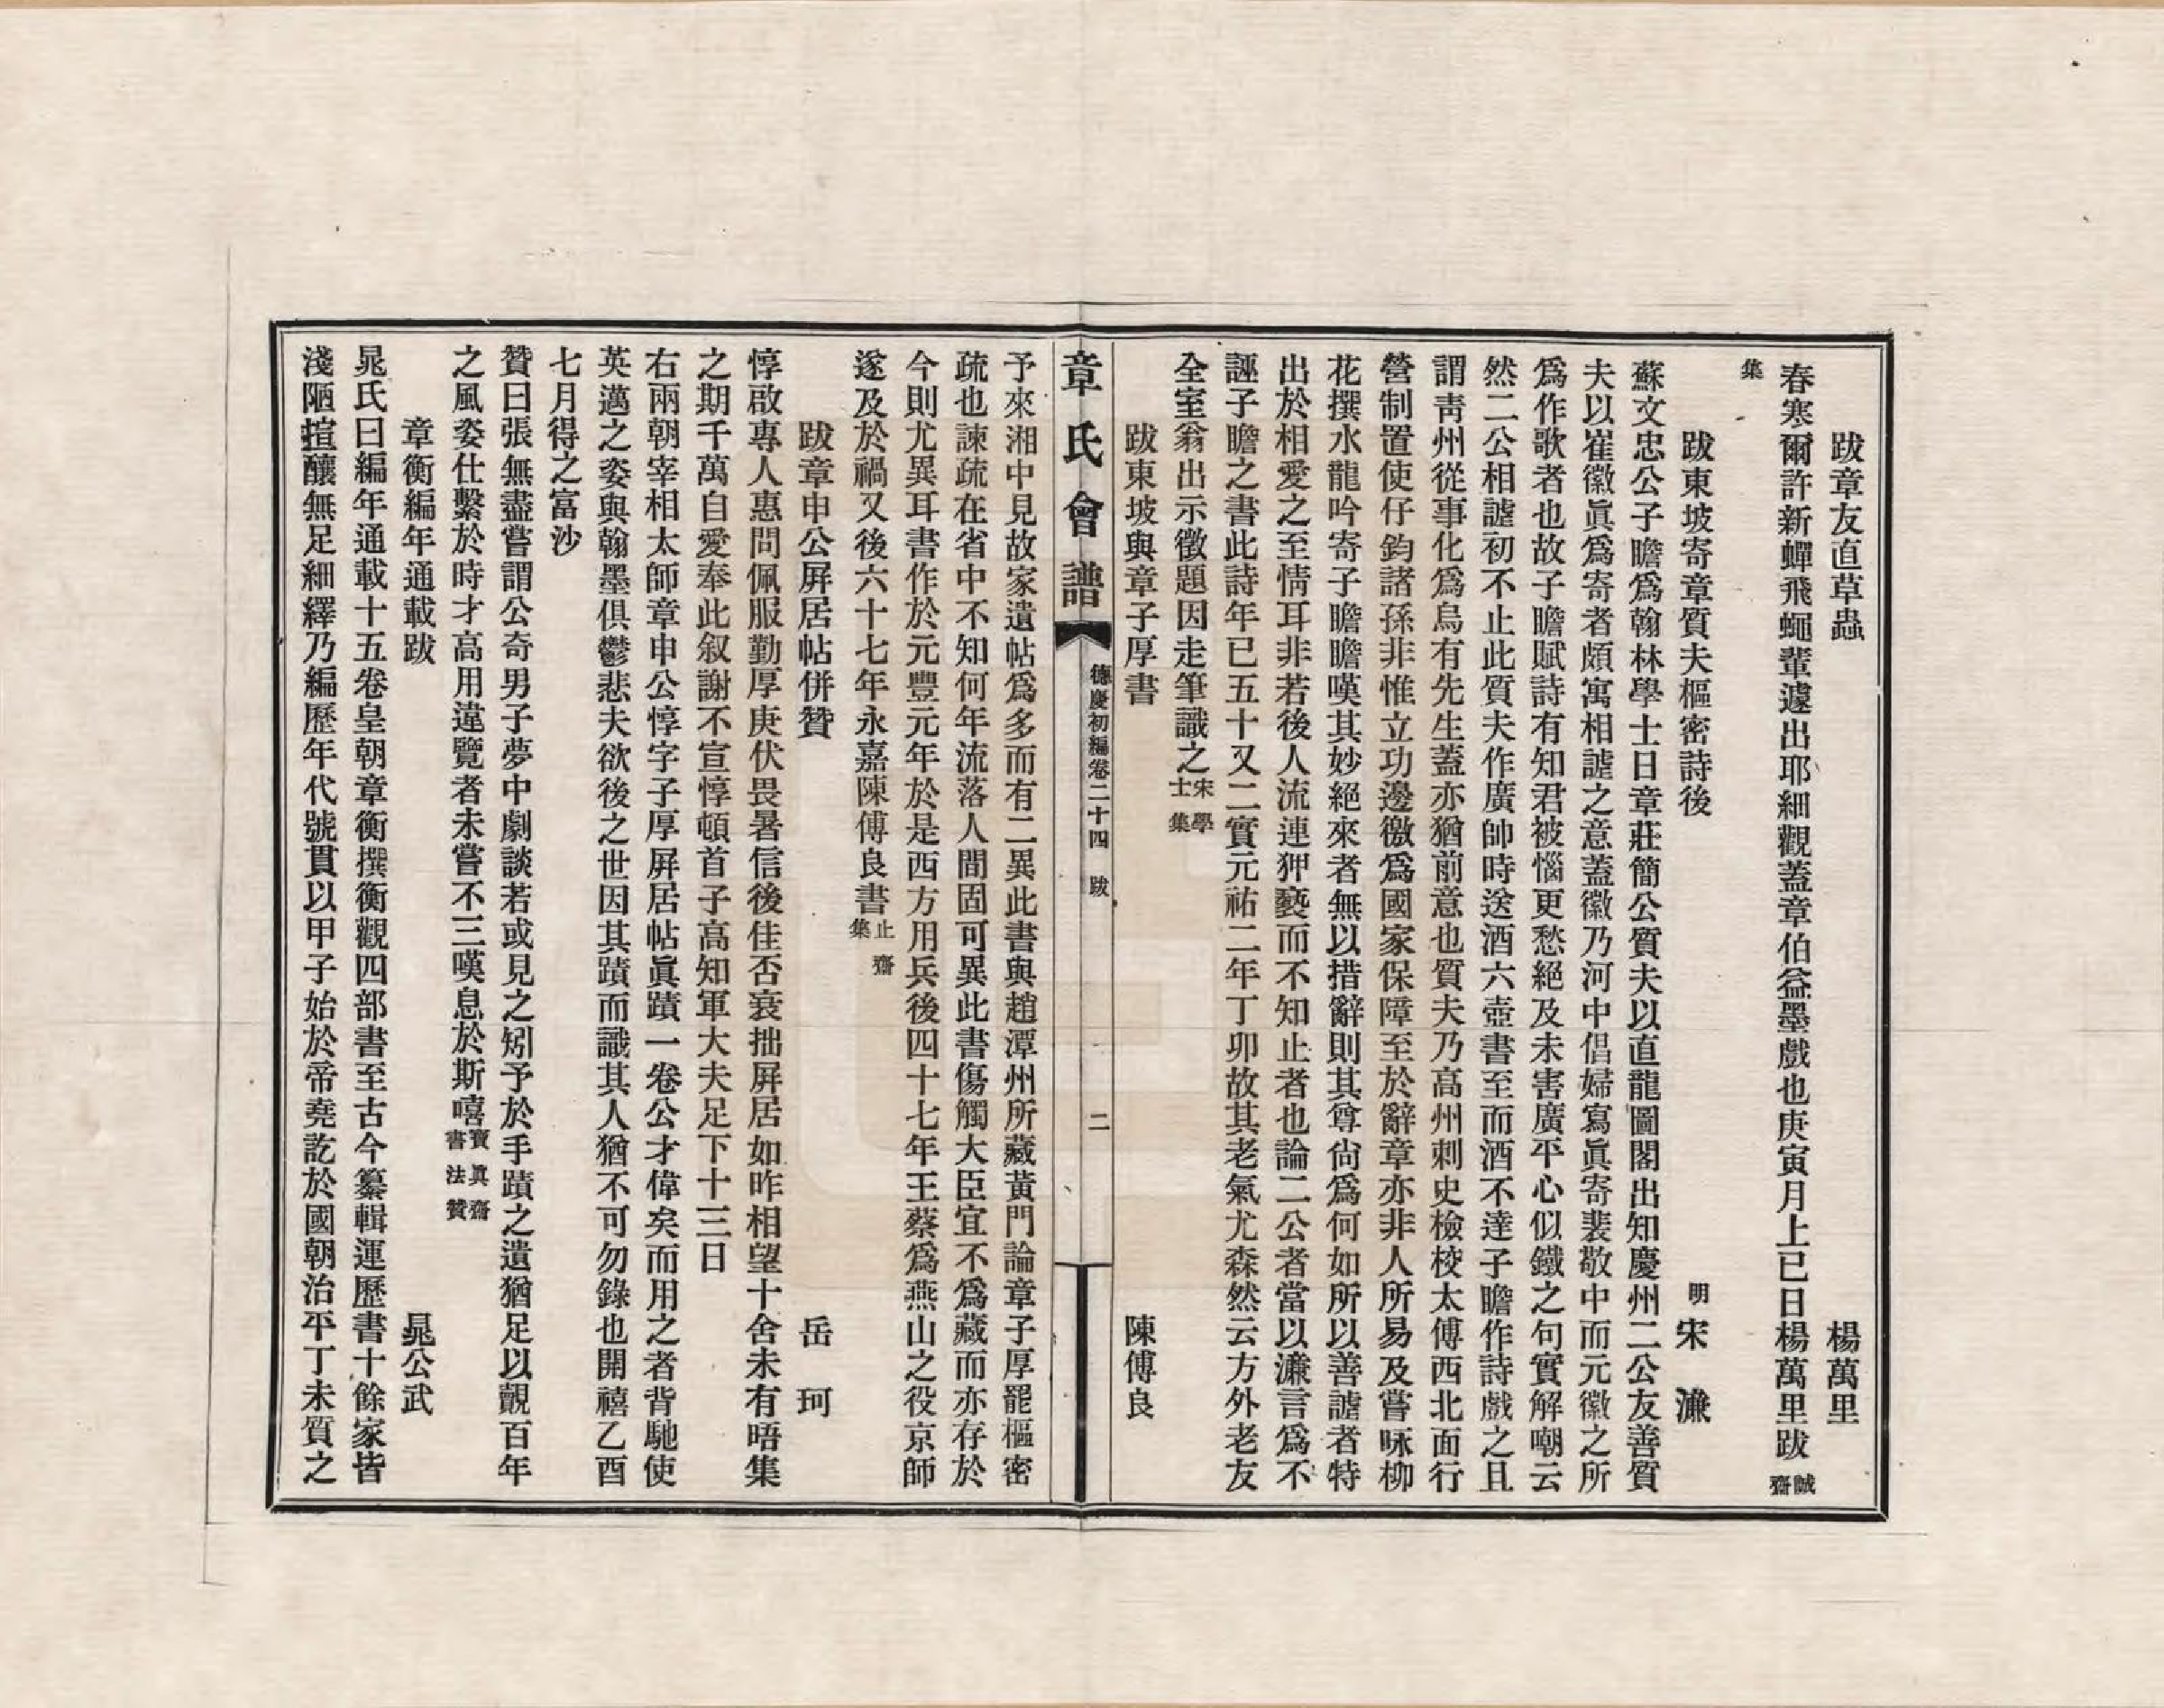 跋章友直草蟲　楊萬里
春寒爾許新蟬飛蠅輩遽出耶細觀蓋章伯益墨戲也庚寅月上巳日楊萬里跋誠齋
集
跋東坡寄章質夫樞密詩後　明宋濂
蘇文忠公子瞻爲翰林學士日章莊簡公質夫以直龍圖閣出知慶州二公友善質
夫以崔徽眞爲寄者頗寓相謔之意蓋徽乃河中倡婦寫眞寄裴敬中而元徽之所
爲作歌者也故子瞻賦詩有知君被惱更愁絕及未害廣平心似鐵之句實解嘲云
然二公相謔初不止此質夫作廣帥時送酒六壺書至而酒不達子瞻作詩戲之且
謂靑州從事化爲烏有先生蓋亦猶前意也質夫乃高州刺史檢校太傅西北面行
營制置使仔鈞諸孫非惟立功邊徼爲國家保障至於辭章亦非人所易及嘗咏柳
花撰水龍吟寄子瞻瞻嘆其妙絕來者無以措辭則其尊尙爲何如所以善謔者特
出於相愛之至情耳非若後人流連狎褻而不知止者也論二公者當以濂言爲不
誣子瞻之書此詩年已五十又二實元祐二年丁卯故其老氣尤森然云方外老友
全室翁出示徵題因走筆識之宋學士集
跋東坡與章子厚書　陳傅良
章氏會譜　德慶初編卷二十四　跋　二
予來湘中見故家遺帖爲多而有二異此書與趙潭州所藏黃門論章子厚罷樞密
疏也諫疏在省中不知何年流落人間固可異此書傷觸大臣宜不爲藏而亦存於
今則尤異耳書作於元豐元年於是西方用兵後四十七年王蔡爲燕山之役京師
遂及於禍又後六十七年永嘉陳傅良書止齋集
跋章申公屏居帖併贊　岳珂
惇啟專人惠問佩服勤厚庚伏畏暑信後佳否衰拙屏居如昨相望十舍未有晤集
之期千萬自愛奉此叙謝不宣惇頓首子高知軍大夫足下十三日
右兩朝宰相太師章申公惇字子厚屏居帖眞蹟一卷公才偉矣而用之者背馳使
英邁之姿與翰墨俱鬱悲夫欲後之世因其蹟而識其人猶不可勿錄也開禧乙酉
七月得之富沙
贊曰張無盡嘗謂公奇男子夢中劇談若或見之矧予於手蹟之遺猶足以覿百年
之風姿仕繫於時才高用違覽者未嘗不三嘆息於斯嘻寶眞齋書法贊
章衡編年通載跋　晁公武
晁氏曰編年通載十五卷皇朝章衡撰衡觀四部書至古今纂輯運歷書十餘家皆
淺陋揎釀無足細繹乃編歷年代號貫以甲子始於帝堯訖於國朝治平丁未質之